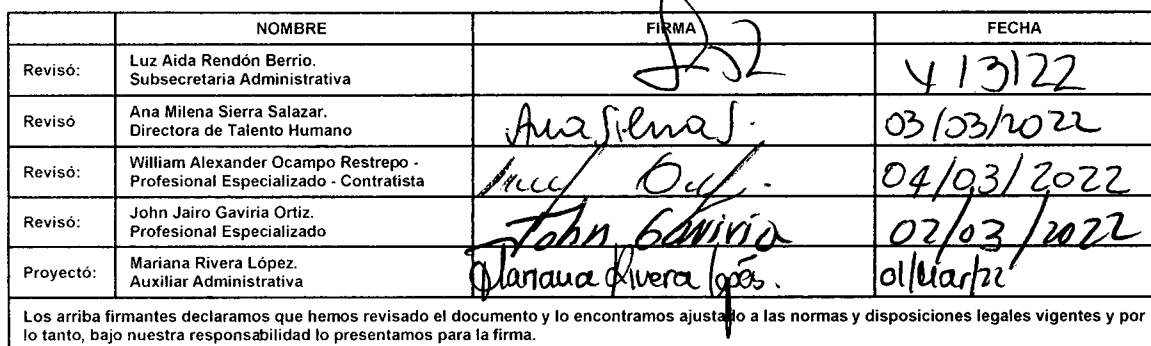 NOMBRE FIRMA FECHA
Revisó: Luz Aida Rendón Berrio.
Subsecretaria Administrativa
4/3/22
Revisó Ana Milena Sierra Salazar.
Directora de Talento Humano
03/03/2022
Revisó: William Alexander Ocampo Restrepo -
Profesional Especializado - Contratista
04/03/2022
Revisó: John Jairo Gaviria Ortiz.
Profesional Especializado
John Gaviria 02/03/2022
Proyectó: Mariana Rivera López.
Auxiliar Administrativa
Mariana Rivera López. 01/Mar/22
Los arriba firmantes declaramos que hemos revisado el documento y lo encontramos ajustado a las normas y disposiciones legales vigentes y por
lo tanto, bajo nuestra responsabilidad lo presentamos para la firma.